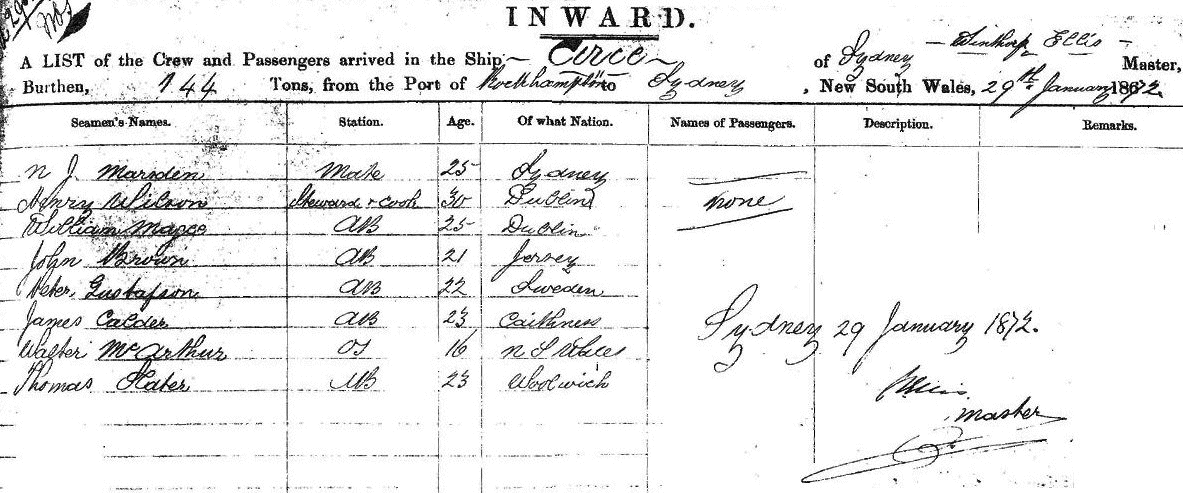 INWARD.
A LIST of the Crew and Passengers arrived in the Ship Circe of Sydney Winthrop Ellis Master,
Burthen, 144 Tons, from the Port of Rockhampton to Sydney, New South Wales, 29th January 1872
Seamen's Names. Station. Age. Of what Nation. Names of Passengers. Description. Remarks.
N J. Marsden Mate 25 Sydney
Henry Wilson Steward & Cook 30 Dublin none
William Magee AB 25 Dublin
John Brown AB 21 Jersey
Peter Gustafson AB 22 Sweden
James Calder AB 23 Caithness Sydney 29 January 1872.
Walter McArthur OS 16 N S Wales
Thomas Slater AB 23 Woolwich
Master